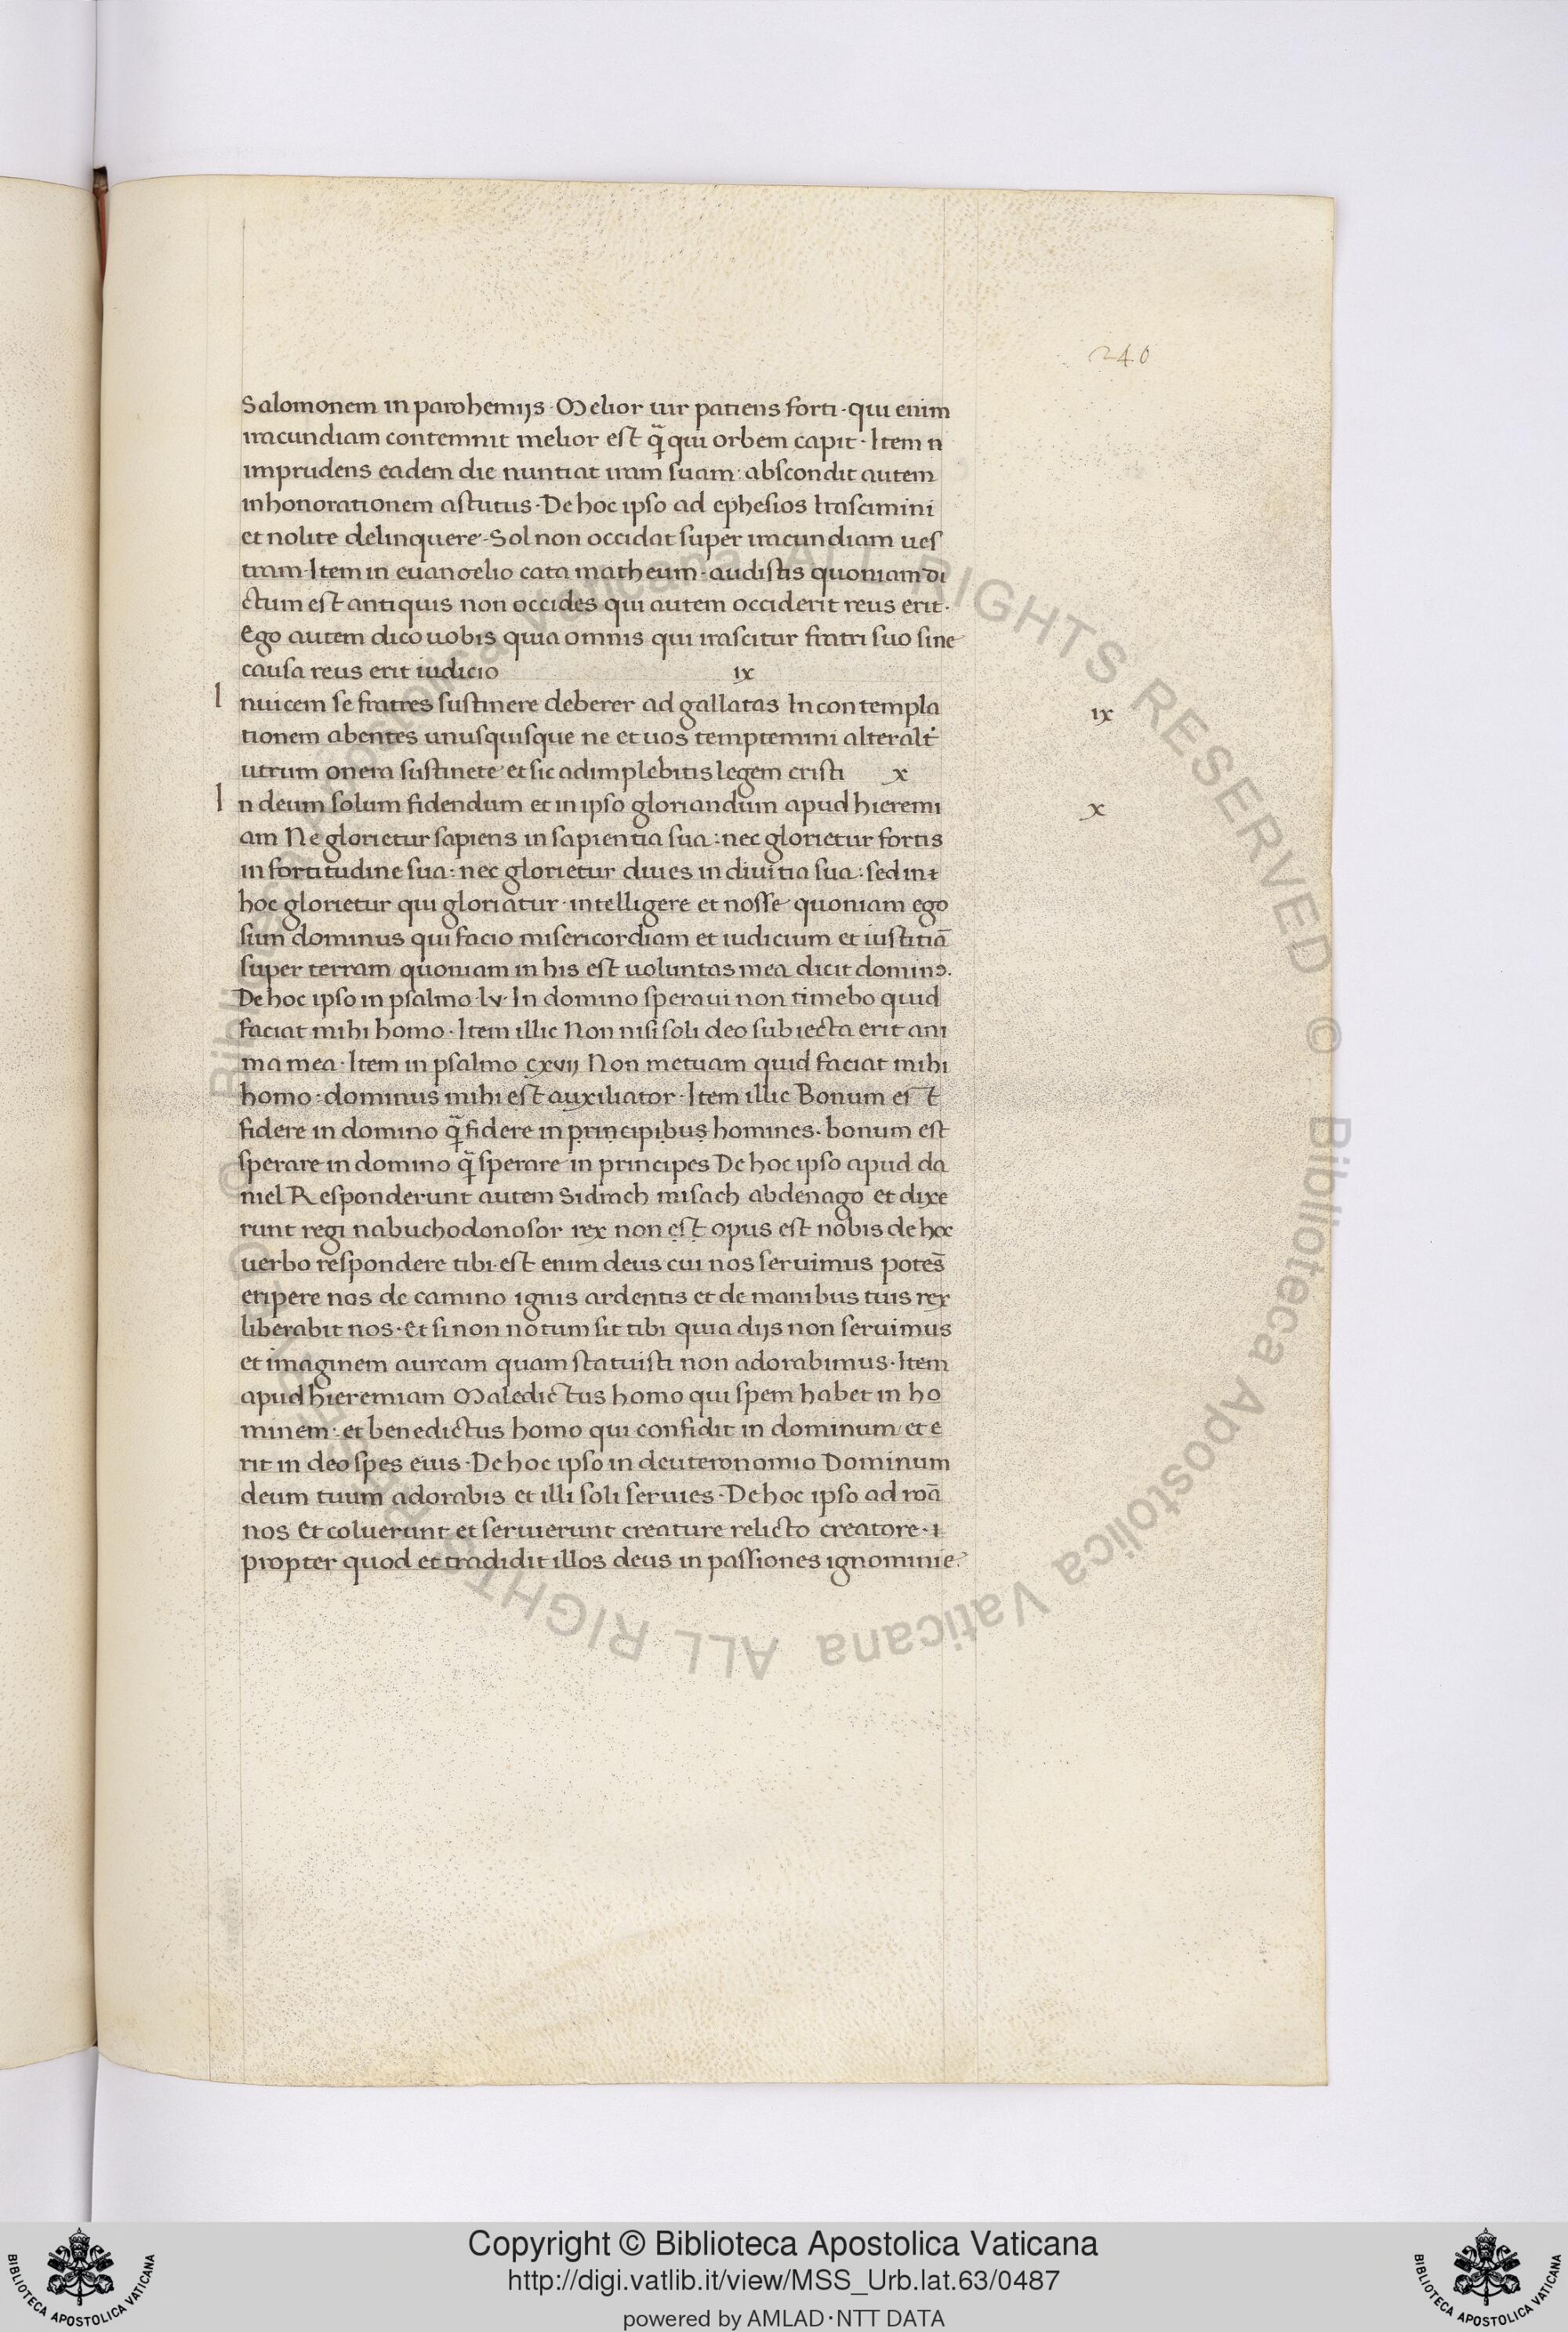 240
Salomonem in parohemijs · Melior uir patiens forti · qui enim
iracundiam contemnit melior est q̃ qui orbem capit · Item n
imprudens eadem die nuntiat iram suam : abscondit autem
inhonorationem astutus · De hoc ipso ad ephesios Irascimini
et nolite delinquere · Sol non occidat super iracundiam ues
tram · Item in euangelio cata matheum · audistis quoniam di
ctum est antiquis non occides qui autem occiderit reus erit ·
Ego autem dico uobis quia omnis qui irascitur fratri suo sine
causa reus erit iudicio ix
Inuicem se fratres sustinere deberer ad gallatas In contempla
ix
tionem abentes unusquisque ne et uos temptemini alteralt᷑
utrum onera sustinete et sic adimplebitis legem cristi x
In deum solum fidendum et in ipso gloriandum apud hieremi
x
am Ne glorietur sapiens in sapientia sua : nec glorietur fortis
in fortitudine sua : nec glorietur diues in diuitia sua : sed in
hoc glorietur qui gloriatur · intelligere et nosse quoniam ego
sum dominus qui facio misericordiam et iudicium et iustitiã
super terram quoniam in his est uoluntas mea dicit dominꝰ.
De hoc ipso in psalmo · lv · In domino speraui non timebo quid
faciat mihi homo · Item illic Non nisi soli deo subiecta erit ani
ma mea · Item in psalmo cxvij Non metuam quid faciat mihi
homo : dominus mihi est auxiliator · Item illic Bonum est
fidere in domino q̃ fidere in principibus homines · bonum est
sperare in domino q̃ sperare in principes De hoc ipso apud da
niel Responderunt autem Sidrach misach abdenago et dixe
runt regi nabuchodonosor rex non est opus est nobis de hoc
uerbo respondere tibi · est enim deus cui nos seruimus potes̃
eripere nos de camino ignis ardentis et de manibus tuis rex
liberabit nos · Et si non notum sit tibi quia dijs non seruimus
et imaginem auream quam statuisti non adorabimus · Item
apud hieremiam Maledictus homo qui spem habet in ho
minem : et benedictus homo qui confidit in dominum et e
rit in deo spes eius · De hoc ipso in deuteronomio Dominum
deum tuum adorabis et illi soli seruies · De hoc ipso ad roã
nos Et coluerunt et seruierunt creature relicto creatore ·
propter quod et tradidit illos deus in passiones ignominie
Copyright © Biblioteca Apostolica Vaticana
http://digi.vatlib.it/view/MSS_Urb.lat.63/0487
powered by AMLAD·NTT DATA